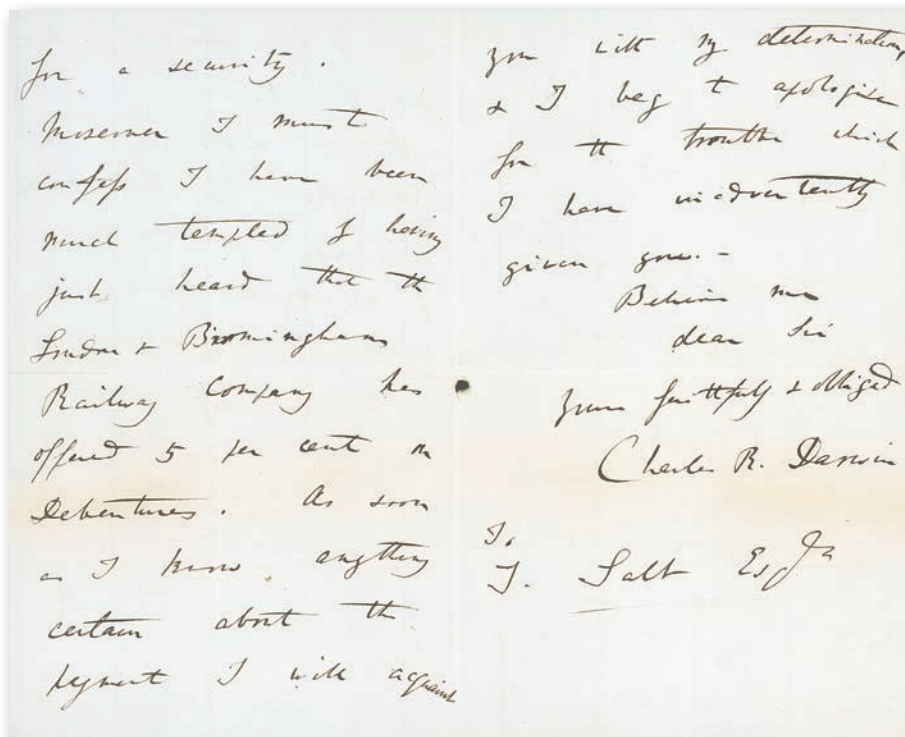 for a security.
Moreover I must
confess I have been
much tempted by having
just heard that the
London & Birmingham
Railway Company has
offered 5 per cent on
Debentures. As soon
as I know anything
certain about the
payment I will acquaint
you with my determination,
& I beg to apologise
for the trouble which
I have inadvertently
given you.—
Believe me
dear Sir
Yours faithfully & obliged
Charles R. Darwin
To
T. Salt Esq Jr